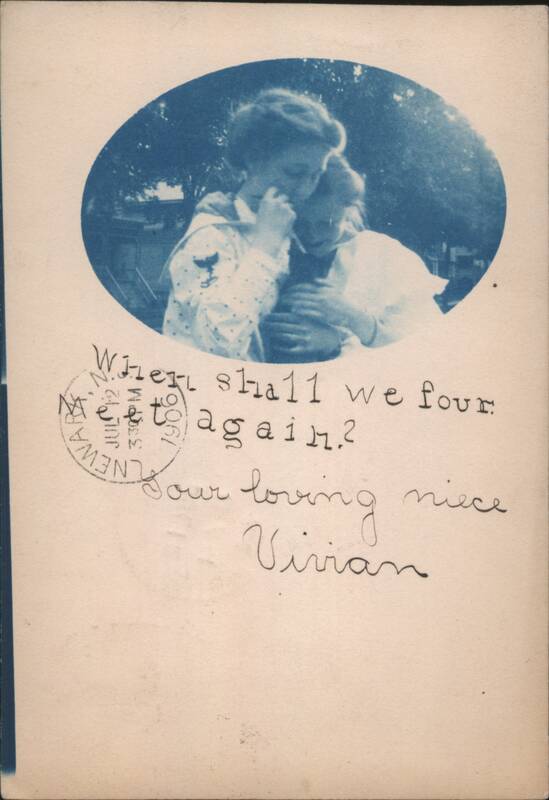 When shall we four
meet again?
Your loving niece
Vivian
NEWARK, N.J.
JUL 12
330PM
1906